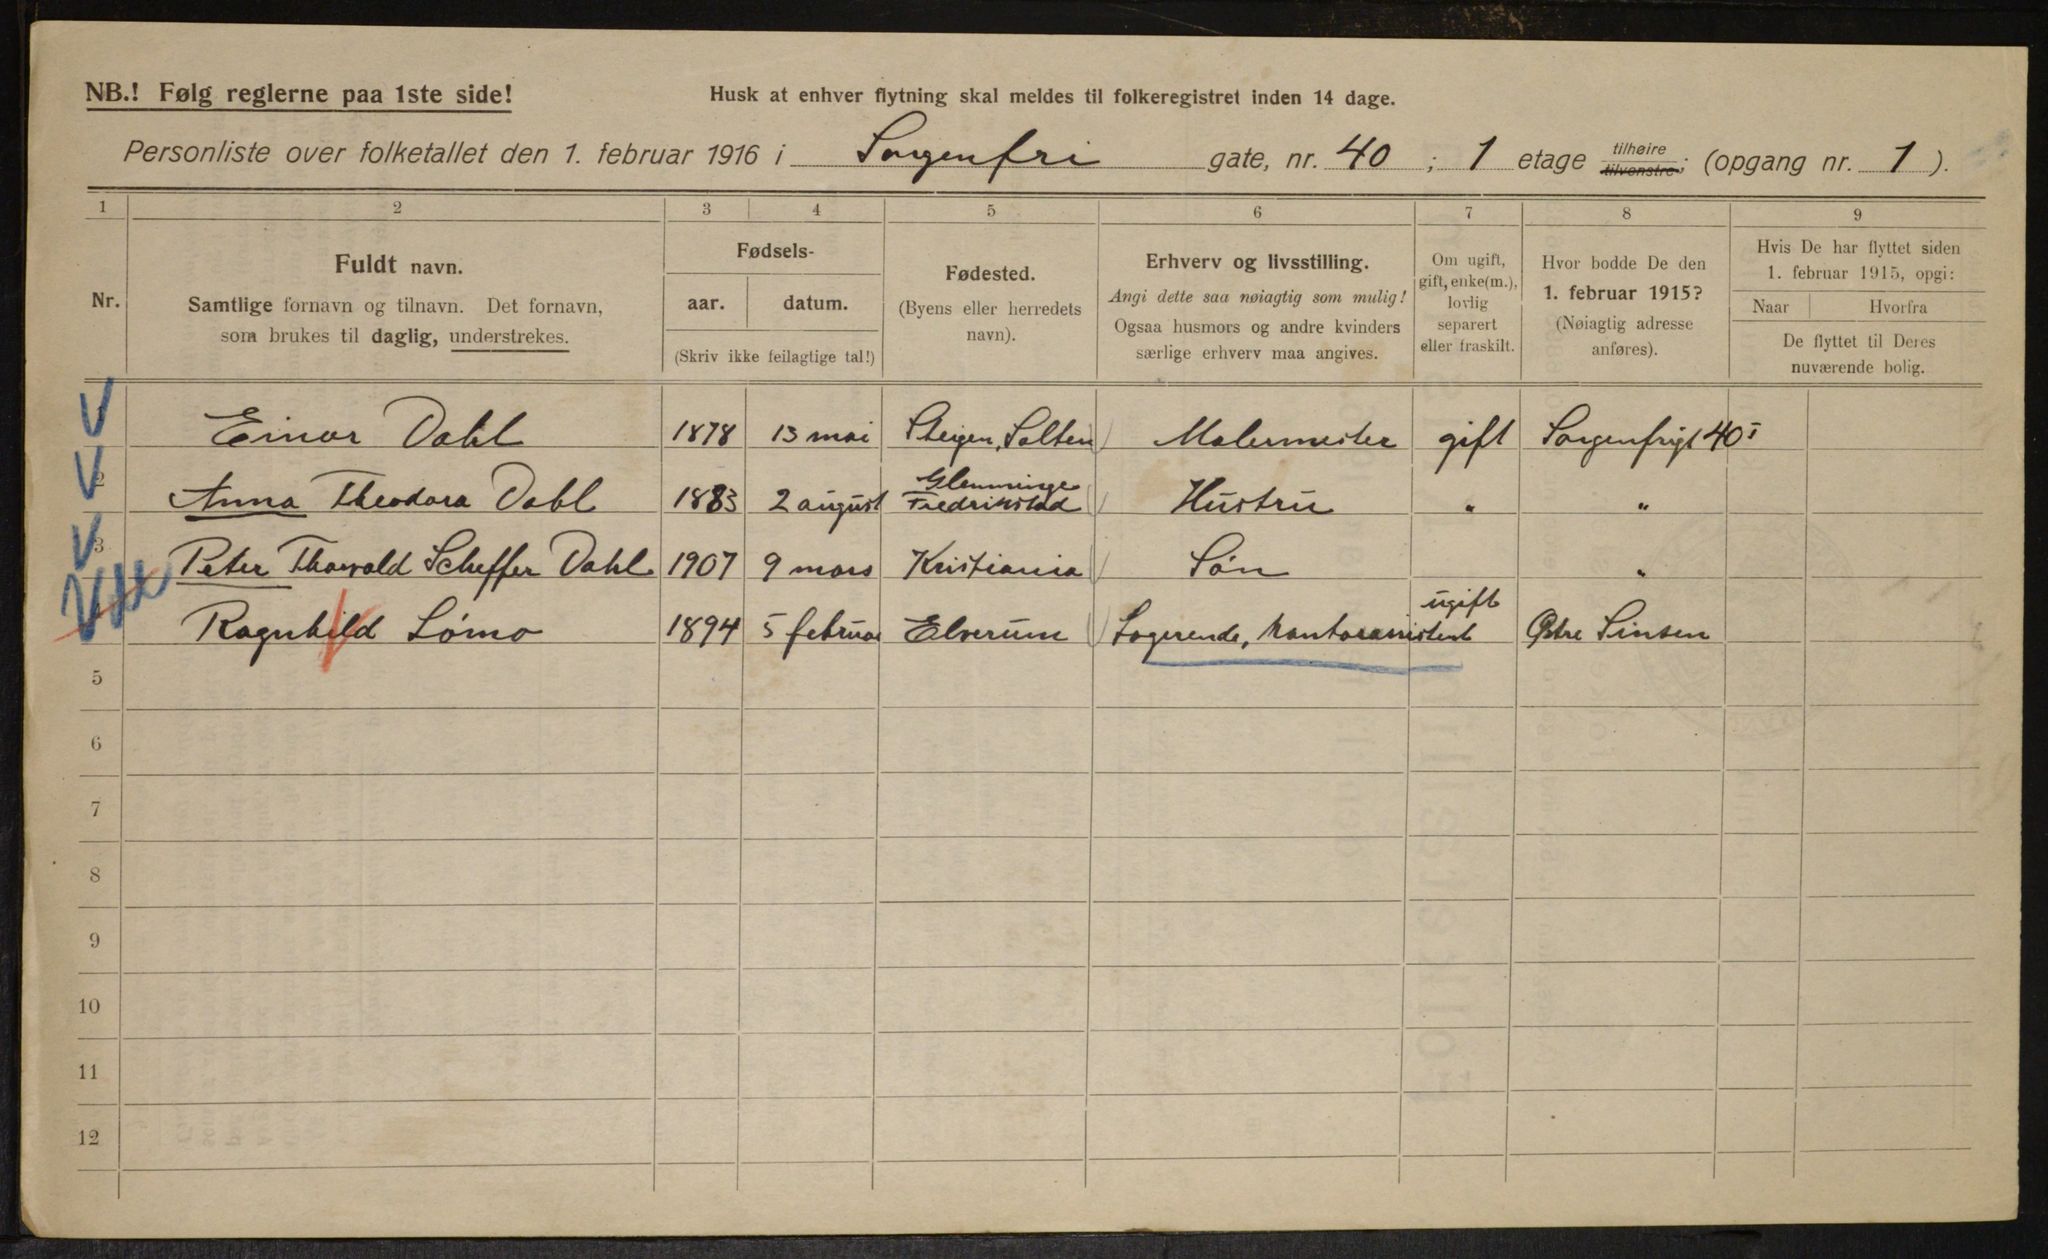 NB.! Følg reglerne paa 1ste side!
Husk at enhver flytning skal meldes til folkeregistret inden 14 dage.
Personliste over folketallet den 1. februar 1916 i Sorgenfri gate, nr. 40 ; 1 etage tilhøire tilvenstre; (opgang nr. 1 ).
1 2 3 4 5 6 7 8 9
Nr.
Fuldt navn.
Samtlige fornavn og tilnavn. Det fornavn,
som brukes til daglig, understrekes.
Fødsels-
aar. datum.
(Skriv ikke feilagtige tal!)
Fødested.
(Byens eller herredets
navn).
Erhverv og livsstilling.
Angi dette saa nøiagtig som mulig!
Ogsaa husmors og andre kvinders
særlige erhverv maa angives.
Om ugift,
gift, enke(m.),
lovlig
separert
eller fraskilt.
Hvor bodde De den
1. februar 1915?
(Nøiagtig adresse
anføres).
Hvis De har flyttet siden
1. februar 1915, opgi:
Naar Hvorfra
De flyttet til Deres
nuværende bolig.
Einar Dahl 1878 13 mai Steigen, Salten Malermester gift Sorgenfrigt 40 I
2 Anna Theodora Dahl 1883 2 august Glemminge Fredrikstad Hustru " "
3 Peter Thorvald Scheffer Dahl 1907 9 mars Kristiania Søn "
Ragnhild Lømo 1894 5 februar Elverum Logerende, kontorassistent ugift Østre Sinsen
5
6
7
8
9
10
11
12